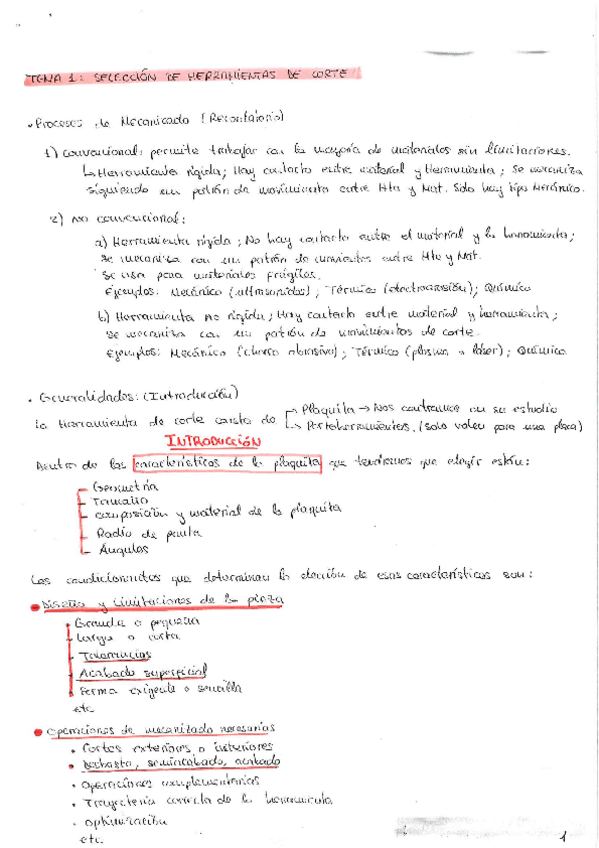 TEMA 1: SELECCIÓN DE HERRAMIENTAS DE CORTE
• Procesos de Mecanizado (Recordatorio)
1) Convencional: permite trabajar con la mayoría de materiales sin limitaciones.
↳ Herramienta rígida; Hay contacto entre material y Herramienta; Se mecaniza
siguiendo un patrón de movimiento entre Hta y Mat. Solo hay tipo Mecánico.
2) No convencional:
a) Herramienta rígida; No hay contacto entre el material y la herramienta;
se mecaniza con un patrón de movimientos entre Hta y Mat.
Se usa para materiales frágiles.
Ejemplos: Mecánico (ultrasonidos); Térmico (electroerosión); Químico
b) Herramienta no rígida; Hay contacto entre material y herramienta;
se mecaniza con un patrón de movimientos de corte.
Ejemplos: Mecánico (chorro abrasivo); Térmico (plasma o láser); Químico.
• Generalidades: (Introducción)
La Herramienta de corte consta de → Plaquita → Nos centramos en su estudio
→ Portaherramientas. (solo valen para una placa)
INTRODUCCIÓN
Dentro de las características de la plaquita que tendremos que elegir están:
- Geometría
- Tamaño
- composición y material de la plaquita
- Radio de punta
- Ángulos
Los condicionantes que determinan la elección de esas características son:
• Diseño y Limitaciones de la pieza
• Grande o pequeña
• Larga o corta
• Tolerancias
• Acabado superficial
• Forma exigente o sencilla
etc
• Operaciones de mecanizado necesarias
• Cortes exteriores o interiores
• Desbaste, semiacabado, acabado
• Operaciones complementarias
• Trayectoria correcta de la herramienta
• Optimización
etc.
1